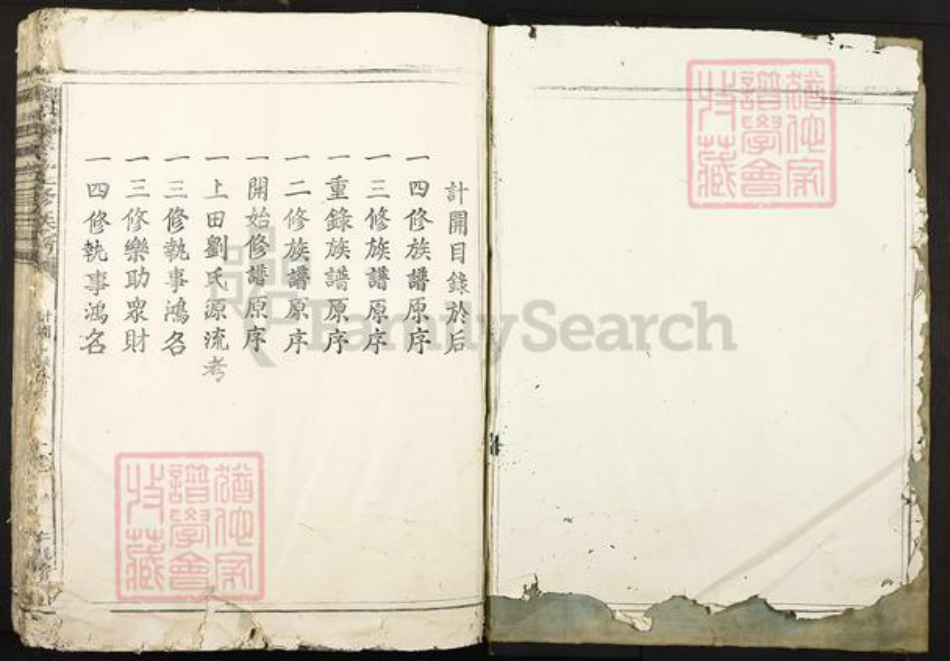 計開目錄於后
一四修族譜原序
一三修族譜原序
一重錄族譜原序
一二修族譜原序
一開始修譜原序
一上田劉氏源流考
一三修執事鴻名
一三修樂助眾財
一四修執事鴻名
猶他家
譜學會
收藏
猶他家
譜學會
收藏
FamilySearch